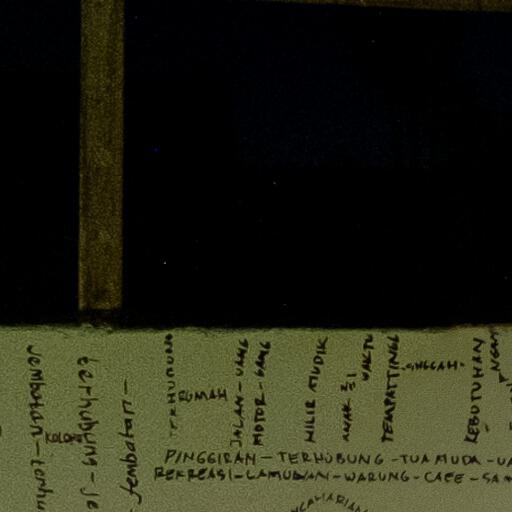 jembatan-terhu
terhubung-je
jembatan-
TERHUBUNG
RUMAH
JALAN-UANG
MOTOR-GANG
HILIR MUDIK
ANAK
WAKTU
TEMPATTINGL
SINGGAH-
KEBUTUHAN
PINGGIRAN-TERHUBUNG-TUA MUDA-UA
REKREASI-LAMUNAN-WARUNG-CAFE-SA
NCAHARIAN